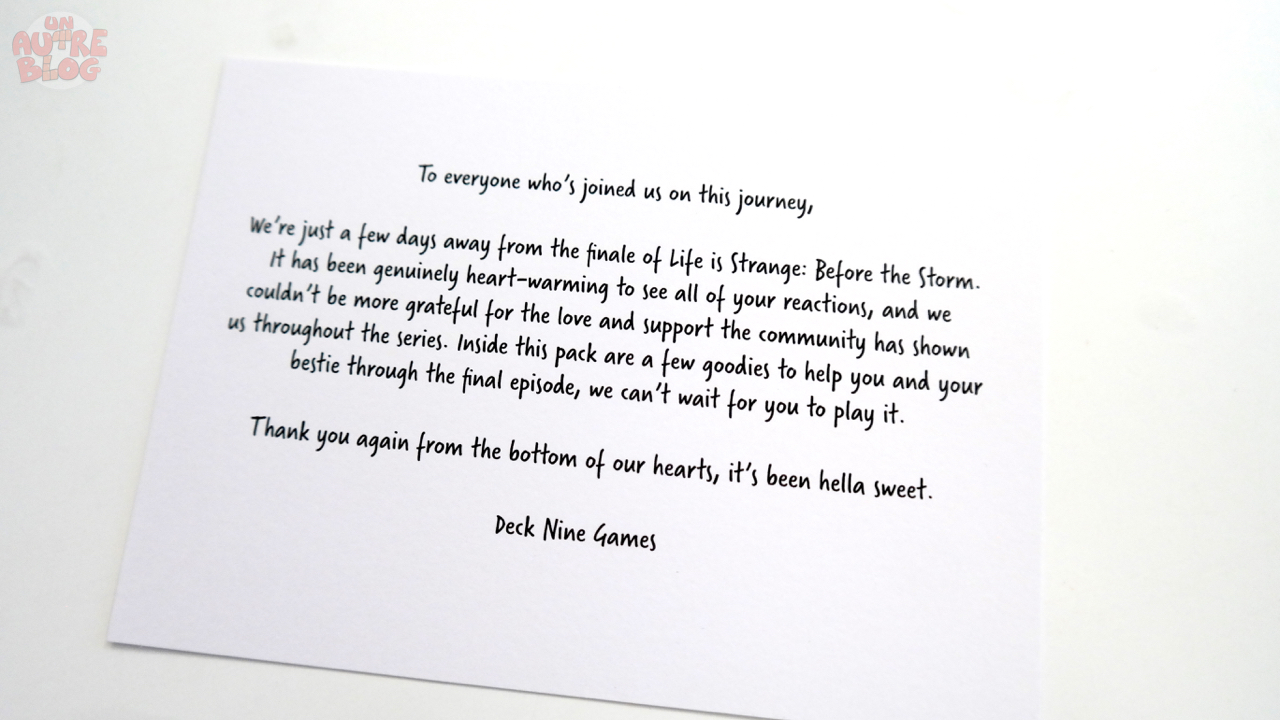 UN
AUTRE
BLOG
To everyone who's joined us on this journey,
We're just a few days away from the finale of Life is Strange: Before the Storm.
It has been genuinely heart-warming to see all of your reactions, and we
couldn't be more grateful for the love and support the community has shown
us throughout the series. Inside this pack are a few goodies to help you and your
bestie through the final episode, we can't wait for you to play it.
Thank you again from the bottom of our hearts, it's been hella sweet.
Deck Nine Games